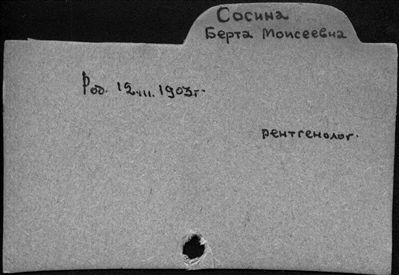 Сосина
Берта Моисеевна
Род. 12.VII. 1903г.
рентгенолог.